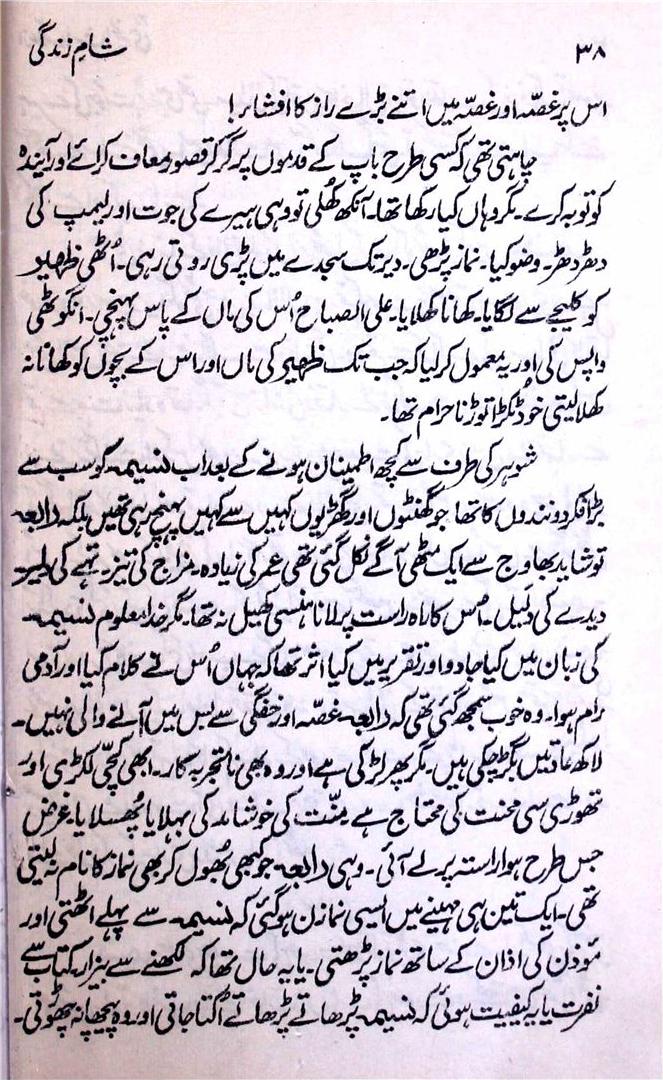 ۳۸ شامِ زندگی
اس پر غصّہ اور غصّہ میں اتنے بڑے راز کا افشاء!
چاہتی تھی کہ کسی طرح باپ کے قدموں پر گر کر قصور معاف کرائے اور آیندہ
کو توبہ کرے۔ مگر وہاں کیا رکھا تھا۔ آنکھ کھُلی تو وہی ہیرے کی جوت اور لیمپ کی
دھڑ دھڑ۔ وضو کیا۔ نماز پڑھی۔ دیر تک سجدے میں پڑی روتی رہی۔ اُٹھی ظہیر
کو کلیجے سے لگایا۔ کھانا کھلایا۔ علی الصباح اُس کی ماں کے پاس پہنچی۔ انگوٹھی
واپس کی اور یہ معمول کر لیا کہ جب تک ظہیر کی ماں اور اس کے بچوں کو کھانا نہ
کھلا لیتی خود ٹکڑا توڑنا حرام تھا۔
شوہر کی طرف سے کچھ اطمینان ہونے کے بعد اب نسیمہ کو سب سے
بڑا فکر دو نندوں کا تھا جو گھنٹوں اور گھڑیوں کہیں سے کہیں پہنچ رہی تھیں بلکہ رابعہ
تو شاید بھاوج سے ایک مٹھی آگے نکل گئی تھی عمر کی زیادہ۔ مزاج کی تیز۔ تہے کی دلیر
دیدے کی دلیل۔ اُس کا راہ راست پر لانا ہنسی کھیل نہ تھا۔ مگر خدا معلوم نسیمہ
کی زبان میں کیا جادو اور تقریر میں کیا اثر تھا کہ جہاں اُس نے کلام کیا اور آدمی
رام ہوا۔ وہ خوب سمجھ گئی تھی کہ رابعہ غصّہ اور خفگی سے بس میں آنے والی نہیں۔
لاکھ عادتیں بگڑ چکی ہیں۔ مگر پھر لڑکی ہے اور وہ بھی ناتجربہ کار۔ ابھی کچّی لکڑی اور
تھوڑی سی محنت کی محتاج ہے منّت کی خوشامد کی بہلایا پھُسلایا۔ غرض
جس طرح ہوا راستہ پر لے آئی۔ وہی رابعہ جو کبھی بھُول کر بھی نماز کا نام نہ لیتی
تھی۔ ایک تین ہی مہینے میں ایسی نمازن ہو گئی کہ نسیمہ سے پہلے اٹھتی اور
مؤذن کی اذان کے ساتھ نماز پڑھتی۔ یا یہ حال تھا کہ لکھنے سے بیزار۔ کتاب سے
نفرت یا یہ کیفیت ہوئی کہ نسیمہ پڑھاتے پڑھاتے اُکتا جاتی اور وہ پیچھا نہ چھوڑتی۔